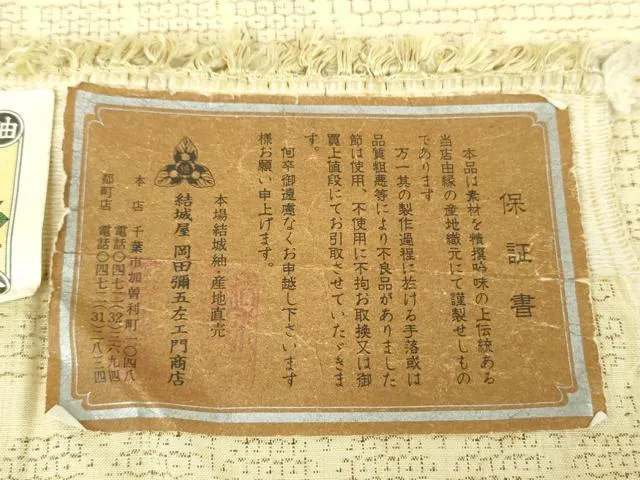 保証書
本品は素材を精撰吟味の上伝統ある
当店由縁の産地織元にて謹製せしもの
であります
万一其の製作過程に於ける手落或は
品質粗悪等により不良品がありました
節は使用、不使用に不拘お取換又は御
買上値段にてお引取させていたゞきま
す。
何卒御遠慮なくお申越し下さいます
様お願い申上げます。
本場結城紬・産地直売
結城屋 岡田彌五左エ門商店
本店 千葉市加曽利町一〇四八
電話〇四七二(32)二六九四
都町店 電話〇四七二(31)八二四
紬